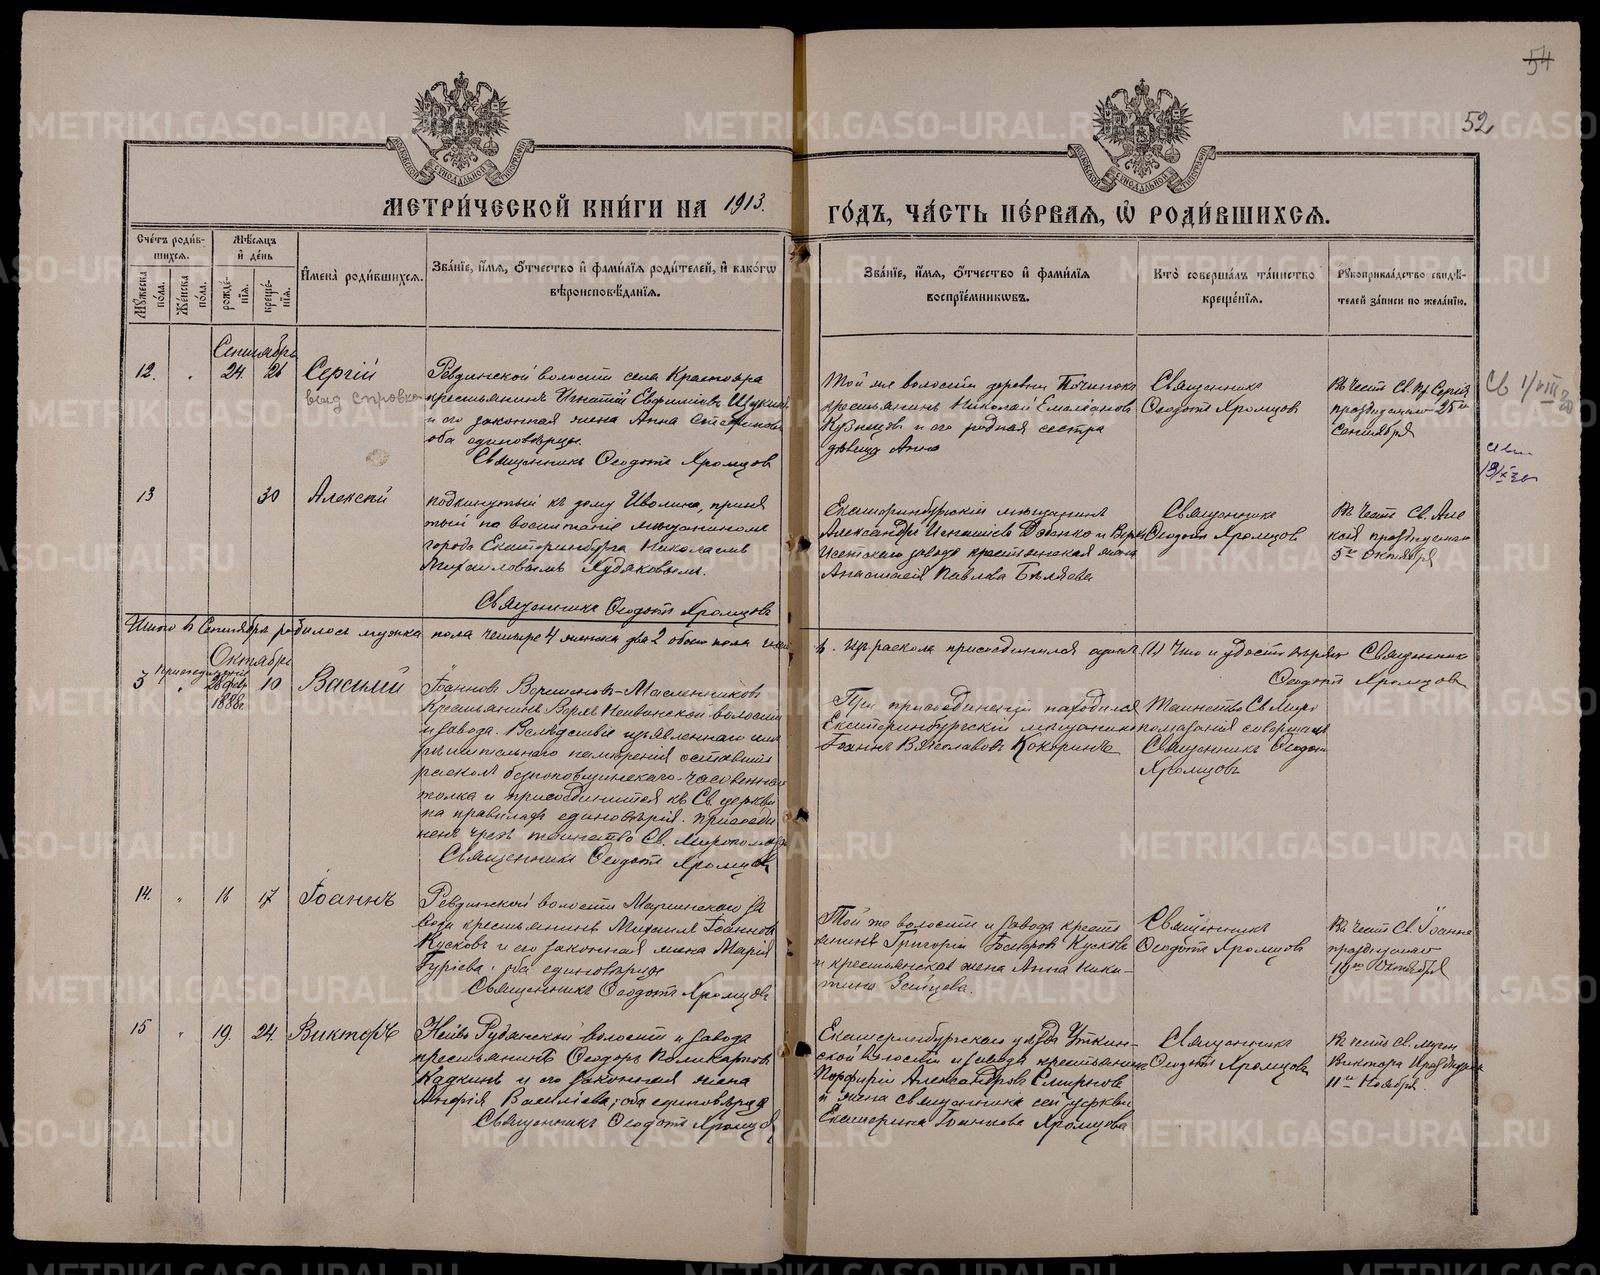 54
52
МЕТРИ́ЧЕСКОЙ КНИ́ГИ НА 1913.
ГО́ДЪ, ЧА́СТЬ ПЕ́РВАѦ, Ѡ҆ РОДИ́ВШИХСѦ.
Сче́тъ роди́в-
шихсѧ.
Мѣ́сѧцъ
и҆ де́нь
Мꙋ́жеска по́ла.
Же́нска по́ла.
рожде́-
нїѧ.
креще́-
нїѧ.
И҆мена̀ роди́вшихсѧ.
Зва́нїе, и҆́мѧ, ѻ҆́тчество и҆ фами́лїѧ роди́телей, и҆ како́гѡ
вѣроисповѣ́данїѧ.
Зва́нїе, и҆́мѧ, ѻ҆́тчество и҆ фами́лїѧ
воспрїе́мникѡвъ.
Кто̀ соверша́лъ та́инство
креще́нїѧ.
Рꙋкоприкла́дство свидѣ́-
телей за́писи по жела́нїю.
Сентябрь
12.
24
26
Сергій
выд справка
Ревдинской волости села Краснояра
крестьянинъ Игнатій Евфиміевъ Щукинъ
и его законная жена Анна Стефанова
оба единовѣрцы.
Священникъ Ѳеодотъ Хромцовъ
Той же волости деревни Починока
крестьянинъ Николай Емеліановъ
Кузнецовъ и его родная сестра
дѣвица Анна
Священникъ
Ѳеодотъ Хромцовъ
Въ честь Св. Пр Сергія
празднуемаго 25го
сентября
Св 1/VIII 30
13
30
Алексій
подкинутый къ дому Иволина, приня
тый на воспитаніе мѣщаниномъ
города Екатеринбурга Николаемъ
Михаиловымъ Худяковымъ.
Священникъ Ѳеодотъ Хромцовъ
Екатеринбургскій мѣщанинъ
Александръ Игнатіевъ и Верхъ
Исетскаго завода крестьянская жена
Анастасія Павлова Бѣляева
Священникъ
Ѳеодотъ Хромцовъ
Въ честь Св. Але
ксія празднуемаго
5го Октября
Итого въ Сентябрѣ родилось мужска пола четыре 4 женска два 2 обоего пола
Изъ раскола присоединился одинъ (1) Что и удостовѣряю Священникъ
Ѳеодотъ Хромцовъ
Октябрь
3
Присоединеніе
26 фев
1888г
10
Василій
Іоанновъ Масленниковъ
крестьянинъ Верхъ Нейвинской волости
и завода. Вслѣдствіе изъявленнаго имъ
рѣшительнаго намѣренія оставить
расколъ безпоповщинскаго часовеннаго
толка и присоединится къ Св. церкви
на правилахъ единовѣрія присоеди
ненъ чрезъ таинство Св. Миропомаз
Священникъ Ѳеодотъ Хромцовъ
При присоединеніи находился
Екатеринбургскій мѣщанинъ
Іоаннъ Вячеславовъ Кокоринъ
Таинство Св Миро
помазанія совершалъ
Священникъ Ѳеодотъ
Хромцовъ
14.
16
17
Іоаннъ
Ревдинской волости Маріинскаго за
вода крестьянинъ Михаилъ Іоанновъ
Кусковъ и его законная жена Марія
Гуріева; оба единовѣрцы
Священникъ Ѳеодотъ Хромцовъ
Той же волости и завода кресть
янинъ Григорій Кусковъ
и крестьянская жена Анна Ники-
тина Зайцева.
Священникъ
Ѳеодотъ Хромцовъ
Въ честь Св. Іоанна
празднуемаго
19го Октября
15
19.
24.
Викторъ
Нейво Рудянской волости и завода
крестьянинъ Ѳеодоръ Поликарповъ
Кадкинъ и его законная жена
Васильева; оба единовѣрцы
Священникъ Ѳеодотъ Хромцовъ
Екатеринбургскаго уѣзда Уткин-
ской волости и завода крестьянинъ
Порфирій Александровъ Смирновъ
и жена священника сей церкви
Екатерина Іоаннова Хромцова
Священникъ
Ѳеодотъ Хромцовъ
Въ честь Св. мучен
Виктора празднуем
11го Ноября.
METRIKI.GASO-URAL.RU